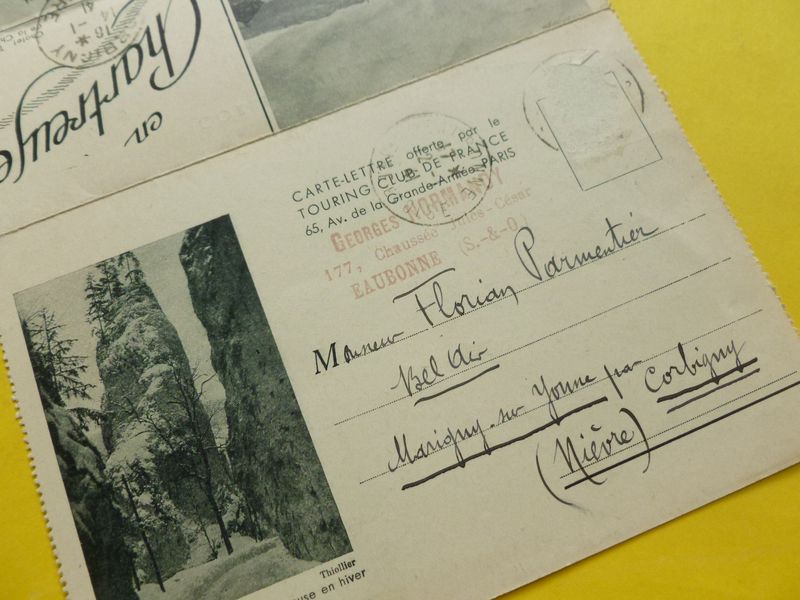 en
Chartreuse
CORBIGNY
18 -1
41
CARTE-LETTRE offerte par le
TOURING CLUB DE FRANCE
65, Av. de la Grande-Armée, PARIS
GEORGES NORMANDY
177, Chaussée Jules-César
EAUBONNE (S.-&-O)
Monsieur Florian Parmentier
Bel Air
Marigny-sur Yonne par Corbigny
(Nièvre)
Thiollier
use en hiver